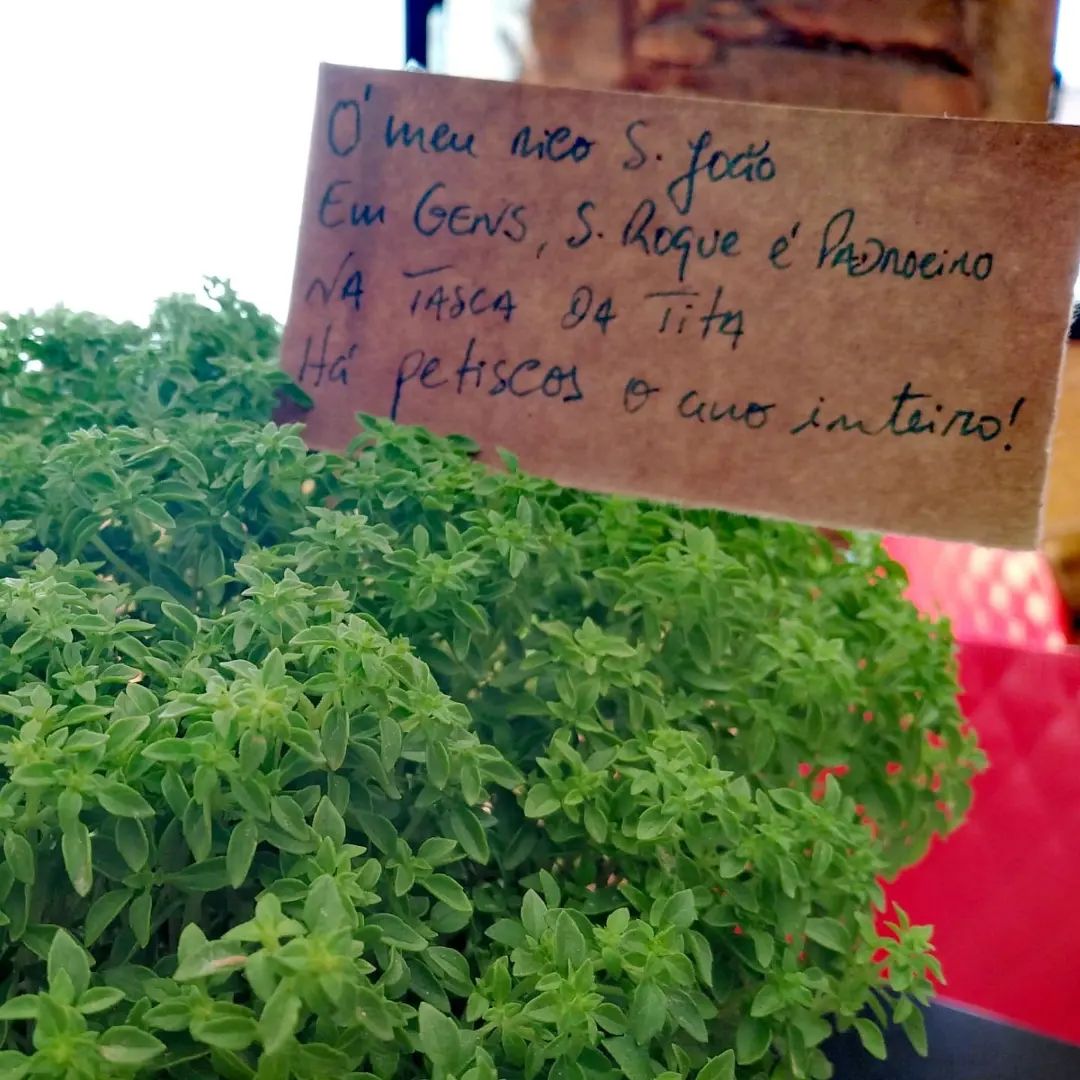 Ó meu rico S. João
Em GENS, S. Roque é PADROEIRO
NA TASCA DA TITA
Há petiscos o ano inteiro!